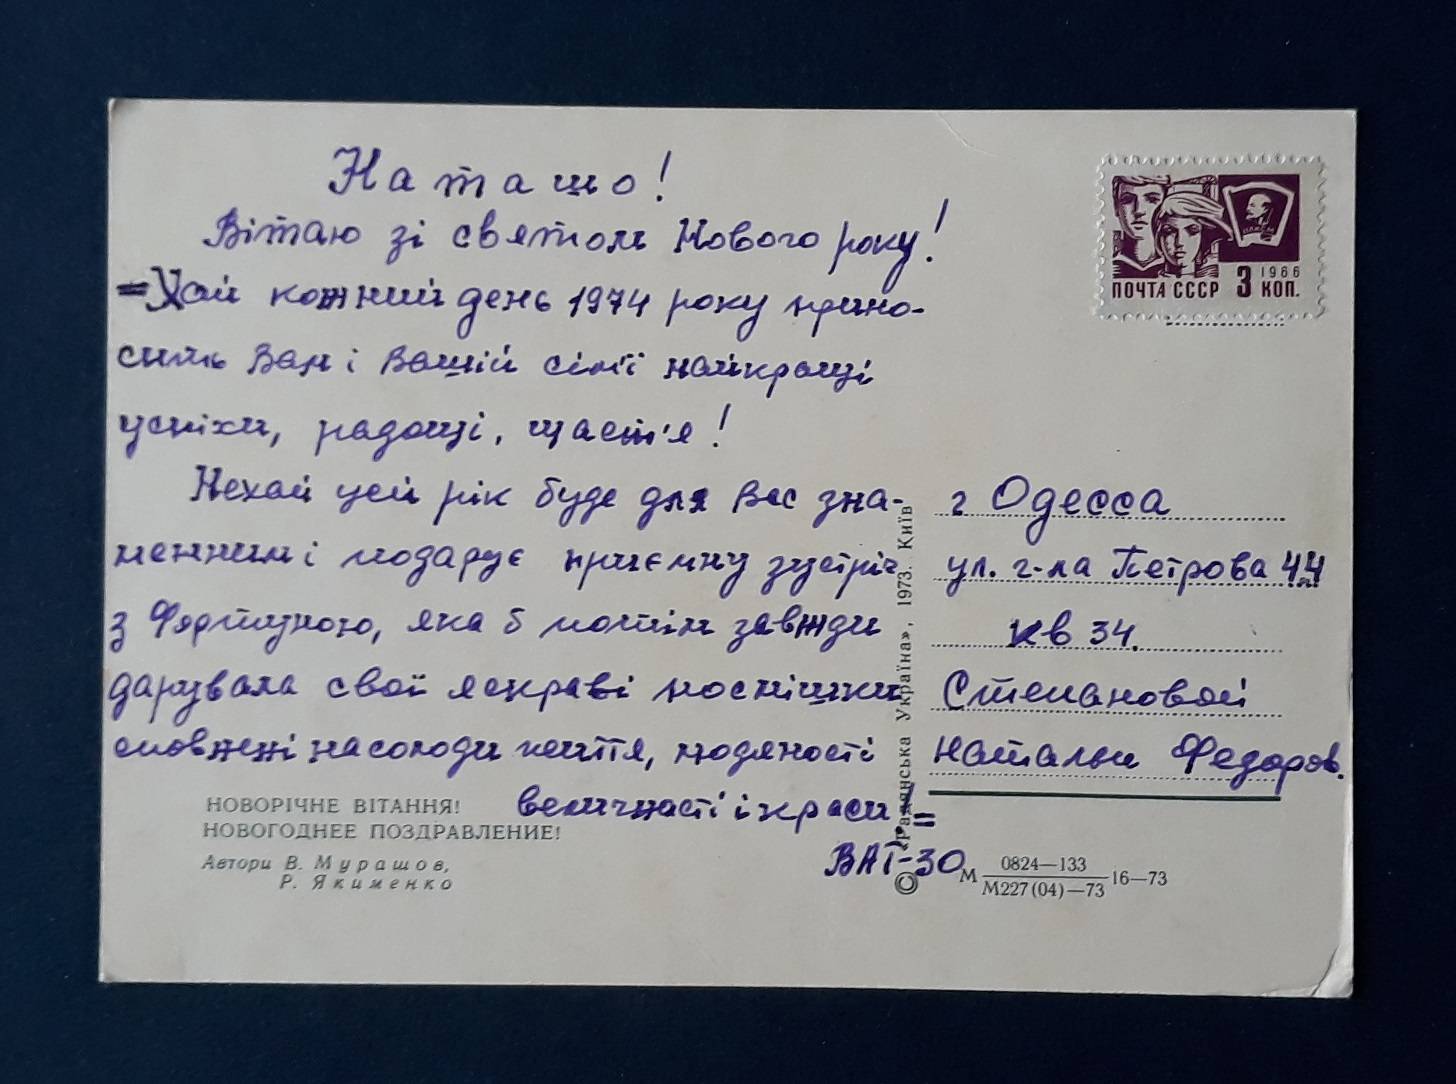 Наташо!
Вітаю зі святом Нового року!
=Хай кожний день 1974 року прино-
сить Вам і Вашій сім'ї найкращі
успіхи, радощі, щастя!
Нехай цей рік буде для Вас зна-
менним і подарує приємну зустріч
з Фортуною, яка б потім завжди
дарувала свої яскраві посмішки
сповнені насолоди життя, людяності
величності і краси!=
ВАГ-30
НОВОРІЧНЕ ВІТАННЯ!
НОВОГОДНЕЕ ПОЗДРАВЛЕНИЕ!
Автори В. Мурашов,
Р. Якименко
© «Радянська Україна», 1973. Київ
ПОЧТА СССР 3 КОП.
1966
ВЛКСМ
г Одесса
ул. г-ла Петрова 44
кв 34.
Степановой
Натальи Федоров.
М 0824—133
М227(04)—73 16—73